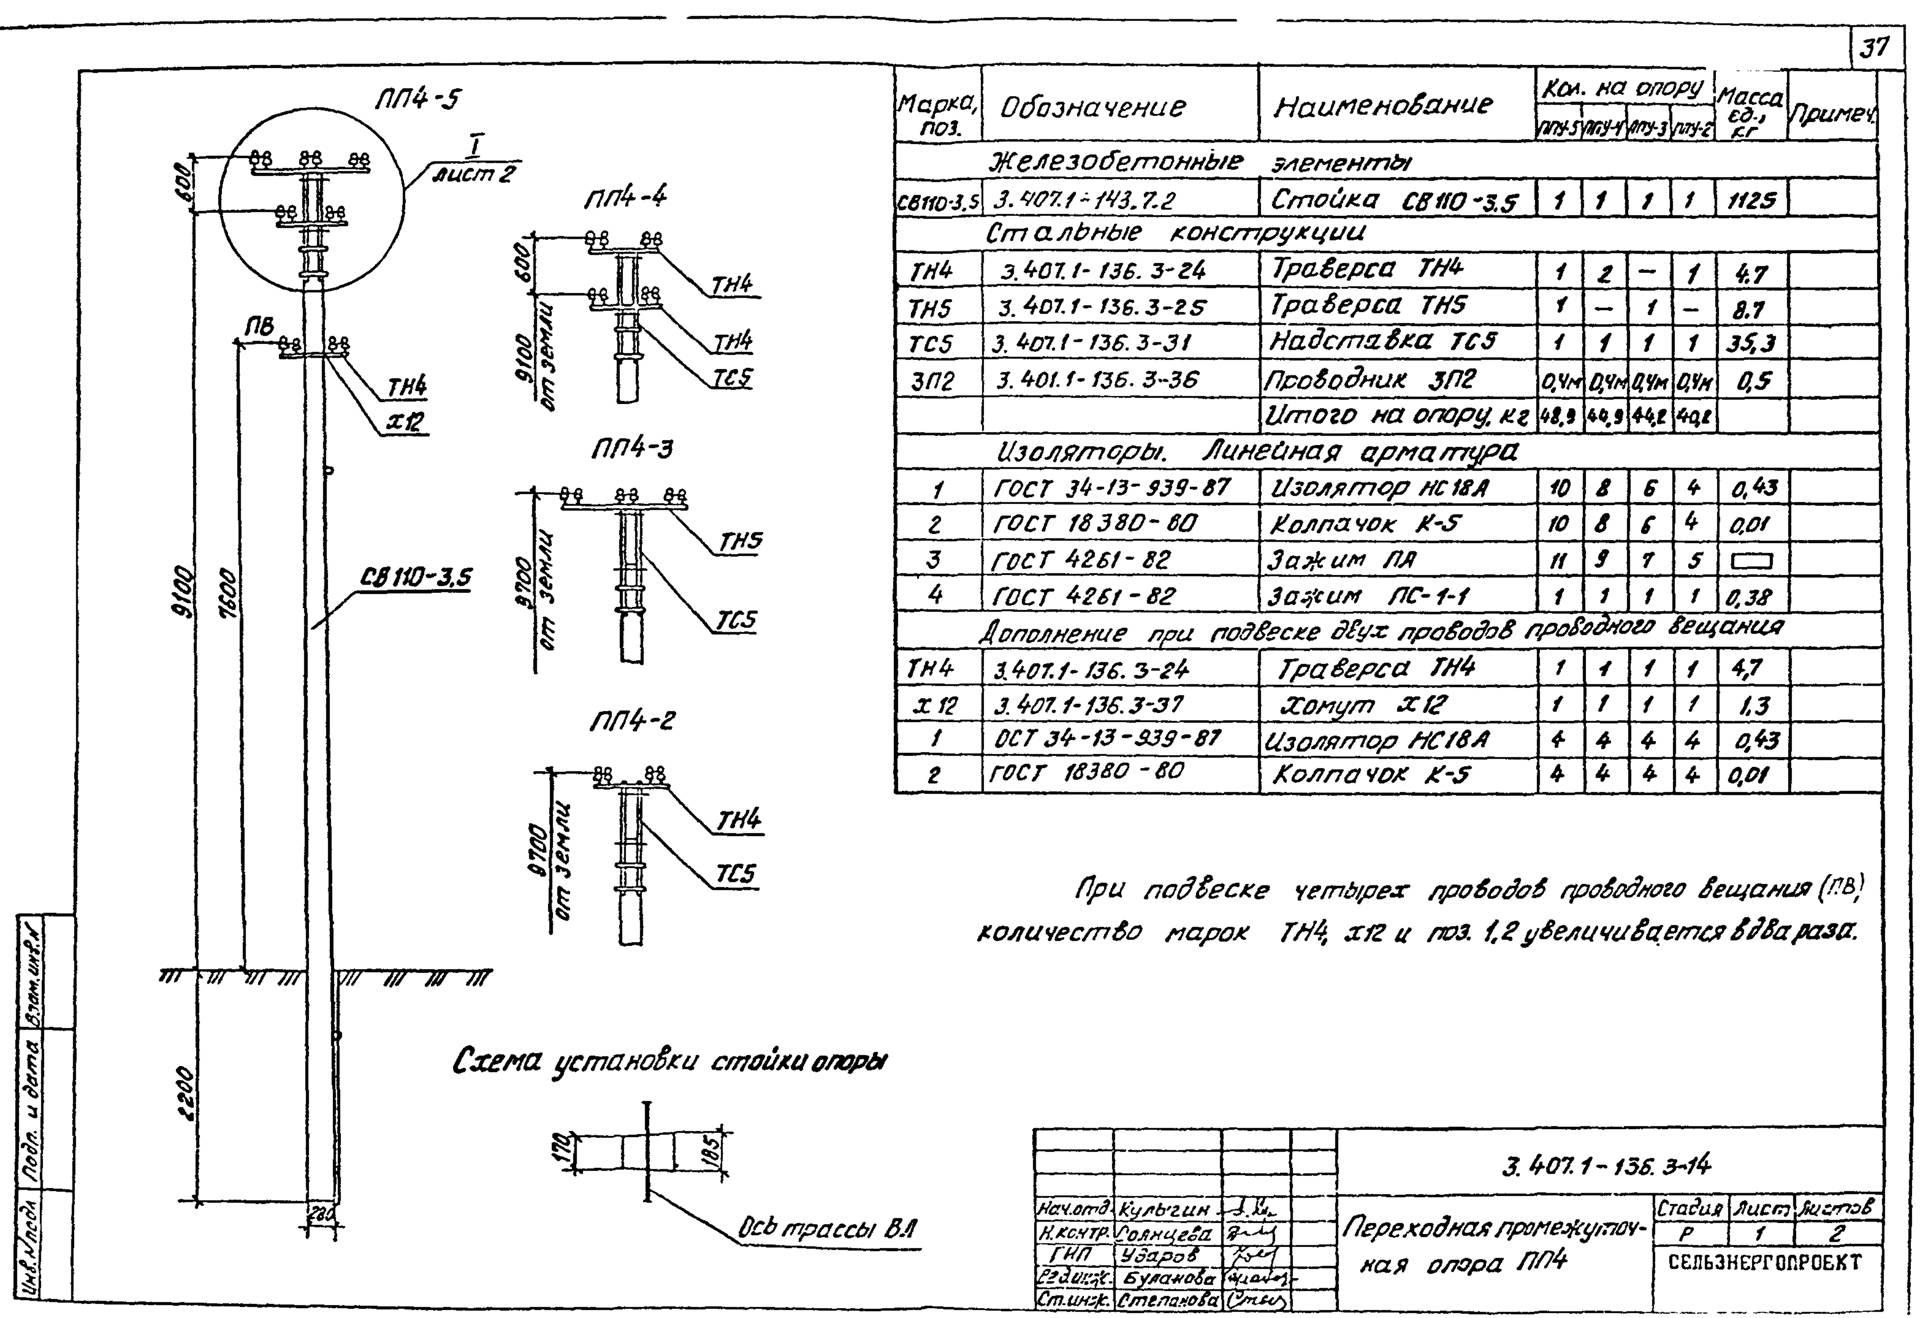 37
ПП4-5
I
лист 2
600
ПВ
ТН4
х12
9100
7600
СВ110-3,5
2200
280
ПП4-4
600
9100
от земли
ТН4
ТН4
ТС5
ПП4-3
9700
от земли
ТН5
ТС5
ПП4-2
9700
от земли
ТН4
ТС5
Схема установки стойки опоры
170
185
Ось трассы ВЛ
Марка, поз. Обозначение Наименование Кол. на опору Масса ед., кг Примеч.
ПП4-5 ПП4-4 ПП4-3 ПП4-2
Железобетонные элементы
СВ110-3,5 3.407.1-143.7.2 Стойка СВ110-3.5 1 1 1 1 1125
Стальные конструкции
ТН4 3.407.1-136.3-24 Траверса ТН4 1 2 — 1 4.7
ТН5 3.407.1-136.3-25 Траверса ТН5 1 — 1 — 8.7
ТС5 3.407.1-136.3-31 Надставка ТС5 1 1 1 1 35,3
ЗП2 3.401.1-136.3-36 Проводник ЗП2 0,4м 0,4м 0,4м 0,4м 0,5
Итого на опору, кг 48,9 44,9 44,2 40,2
Изоляторы. Линейная арматура
1 ГОСТ 34-13-939-87 Изолятор НС18А 10 8 6 4 0,43
2 ГОСТ 18380-80 Колпачок К-5 10 8 6 4 0,01
3 ГОСТ 4261-82 Зажим ПА 11 9 7 5
4 ГОСТ 4261-82 Зажим ПС-1-1 1 1 1 1 0,38
Дополнение при подвеске двух проводов проводного вещания
ТН4 3.407.1-136.3-24 Траверса ТН4 1 1 1 1 4,7
х12 3.407.1-136.3-37 Хомут х12 1 1 1 1 1,3
1 ОСТ 34-13-939-87 Изолятор НС18А 4 4 4 4 0,43
2 ГОСТ 18380-80 Колпачок К-5 4 4 4 4 0,01
При подвеске четырех проводов проводного вещания (ПВ)
количество марок ТН4, х12 и поз. 1,2 увеличивается в два раза.
3.407.1-136.3-14
Нач.отд. Кулыгин
Н.контр. Солнцева
ГИП Ударов
Рук.инж. Буланова
Ст.инж. Степанова
Переходная промежуточ-
ная опора ПП4
Стадия Лист Листов
Р 1 2
СЕЛЬЭНЕРГОПРОЕКТ
Инв.№подл Подп. и дата Взам.инв.№